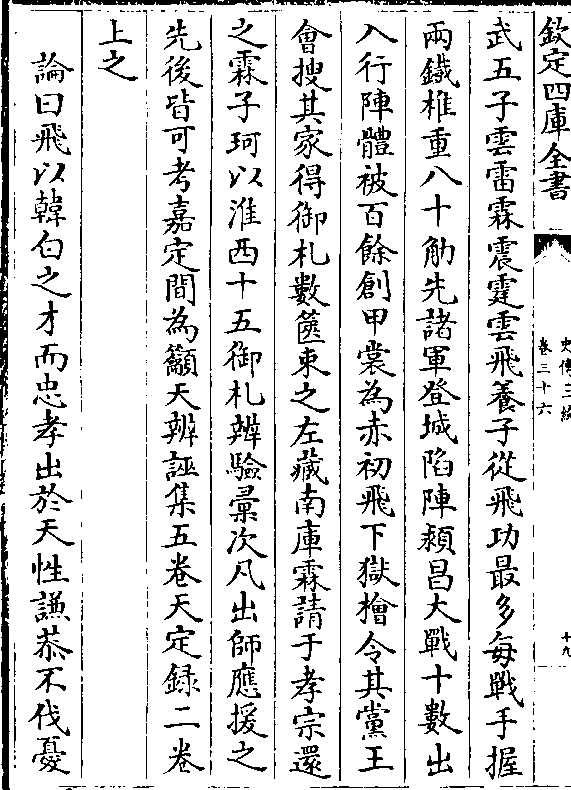 欽定四庫全書
史傳三編
卷三十六
十九
武五子雲雷霖震霆雲飛養子從飛功最多每戰手握
兩鐵椎重八十觔先諸軍登城陷陣潁昌大戰十數出
入行陣體被百餘創甲裳為赤初飛下獄檜令其黨王
會搜其家得御札數篋束之左藏南庫霖請于孝宗還
之霖子珂以淮西十五御札辨驗彚次凡出師應援之
先後皆可考嘉定間為籲天辨誣集五卷天定録二卷
上之
論曰飛以韓白之才而忠孝出於天性謙恭不伐憂